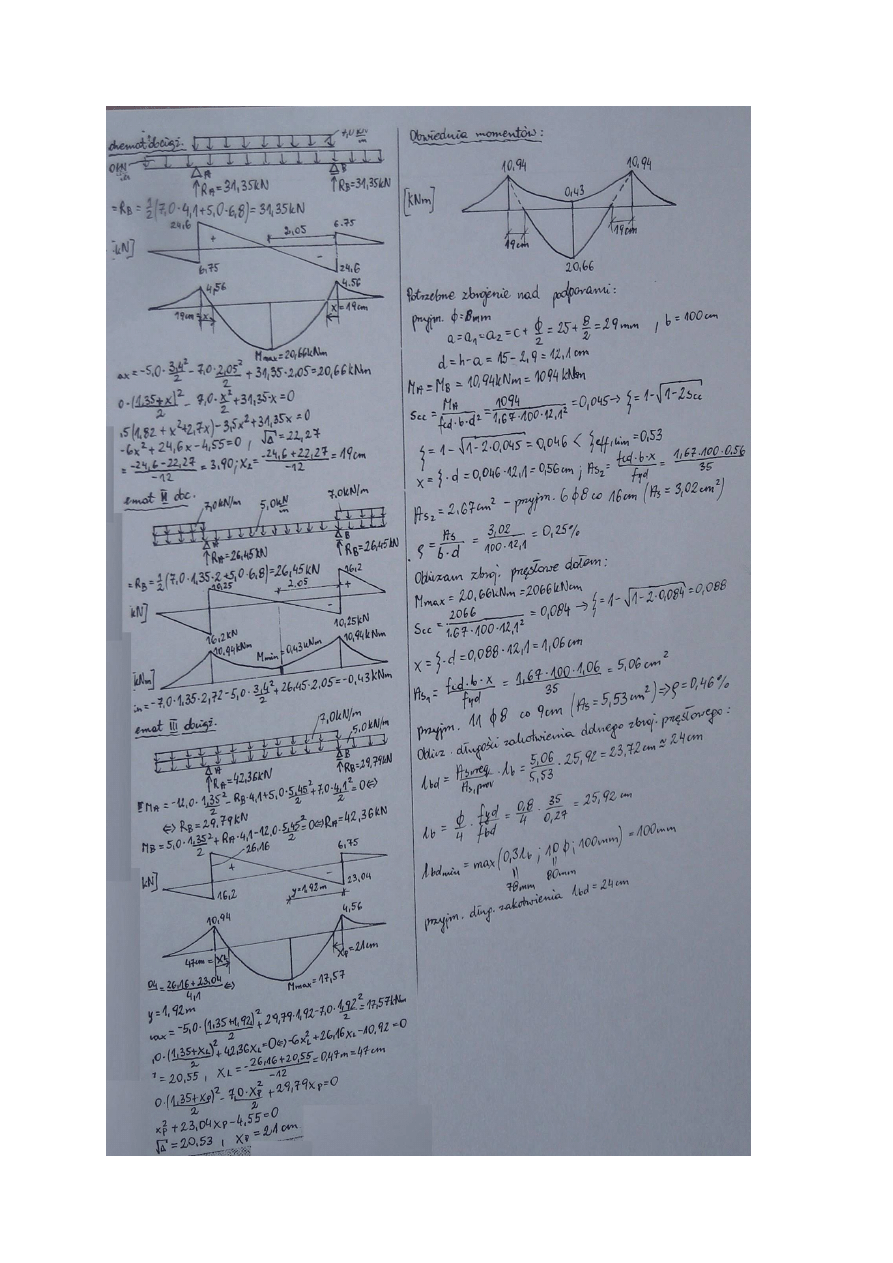 chemat obciąż. 7,0 kN/m
A B
RA=31,35kN RB=31,35kN
=RB=½(7,0·4,1+5,0·6,8)=31,35kN
24,6 2,05 6.75
kN] + -
6,75 24.6
4,56 4.56
19cm x x=19cm
Mmax=20,66kNm
ax=-5,0·3,4²/2-7,0·2,05²/2+31,35·2,05=20,66kNm
0·(1,35+x)²/2-7,0·x²/2+31,35·x=0
,5(1,82+x²+2,7x)-3,5x²+31,35x=0
-6x²+24,6x-4,55=0, √Δ=22,27
=-24,6-22,27/-12=3,90; x2=-24,6+22,27/-12=19cm
emat II obc.
7,0kN/m 5,0kN/m 7,0kN/m
A B
RA=26,45kN RB=26,45kN
=RB=½(7,0·1,35·2+5,0·6,8)=26,45kN
10,25 2.05 16,2
kN] - +
16,2kN 10,25kN
10,94kNm Mmin=0,43kNm 10,94kNm
[kNm]
in=-7,0·1,35·2,72-5,0·3,4²/2+26,45·2,05=-0,43kNm
emat III obciąż. 7,0kN/m
5,0kN/m
A B
RA=42,36kN RB=29,79kN
ΣMA=-12,0·1,35²/2-RB·4,1+5,0·5,45²/2+7,0·4,1²/2=0⇔
⇔RB=29,79kN
MB=5,0·1,35²/2+RA·4,1-12,0·5,45²/2=0⇔RA=42,36kN
26,16 6,75
kN] + -
16,2 y=1,92m 23,04
10,94 4,56
47cm=xL xp=21cm
Mmax=17,57
04=26,16+23,04/4,1⇔
y=1,92m
max=-5,0·(1,35+1,92)²/2+29,79·1,92-7,0·1,92²/2=17,57kNm
,0·(1,35+xL)²/2+42,36xL=0⇔-6xL²+26,16xL-10,92=0
=20,55, xL=-26,16+20,55/-12=0,47m=47cm
0·(1,35+xp)²/2-7,0·xp²/2+29,79xp=0
xp²+23,04xp-4,55=0
√Δ=20,53, xp=21cm
Obwiednia momentów:
10,94 10,94
[kNm] 0,43
19cm 19cm
20,66
Potrzebne zbrojenie nad podporami:
przyjm. ϕ=8mm
a=a1=a2=c+ϕ/2=25+8/2=29mm, b=100cm
d=h-a=15-2,9=12,1cm
MA=MB=10,94kNm=1094kNcm
Scc=MA/fcd·b·d²=1094/1,67·100·12,1²=0,045→ξ=1-√1-2Scc
ξ=1-√1-2·0,045=0,046<ξeff,lim=0,53
x=ξ·d=0,046·12,1=0,56cm; As2=fcd·b·x/fyd=1,67·100·0.56/35
As2=2,67cm²-przyjm. 6ϕ8 co 16cm (As=3,02cm²)
ρ=As/b·d=3,02/100·12,1=0,25%
Obliczam zbroj. przęsłowe dołem:
Mmax=20,66kNm=2066kNcm
Scc=2066/1,67·100·12,1²=0,084→ξ=1-√1-2·0,084=0,088
x=ξ·d=0,088·12,1=1,06cm
As1=fcd·b·x/fyd=1,67·100·1,06/35=5,06cm²
przyjm. 11ϕ8 co 9cm (As=5,53cm²)⇒ρ=0,46%
Oblicz. długości zakotwienia dolnego zbroj. przęsłowego:
lbd=As,req/As,prov·lb=5,06/5,53·25,92=23,72cm≃24cm
lb=ϕ/4·fyd/fbd=0,8/4·35/0,27=25,92cm
lbdmin=max(0,3lb; 10ϕ; 100mm)=100mm
78mm 80mm
przyjm. dług. zakotwienia lbd=24cm